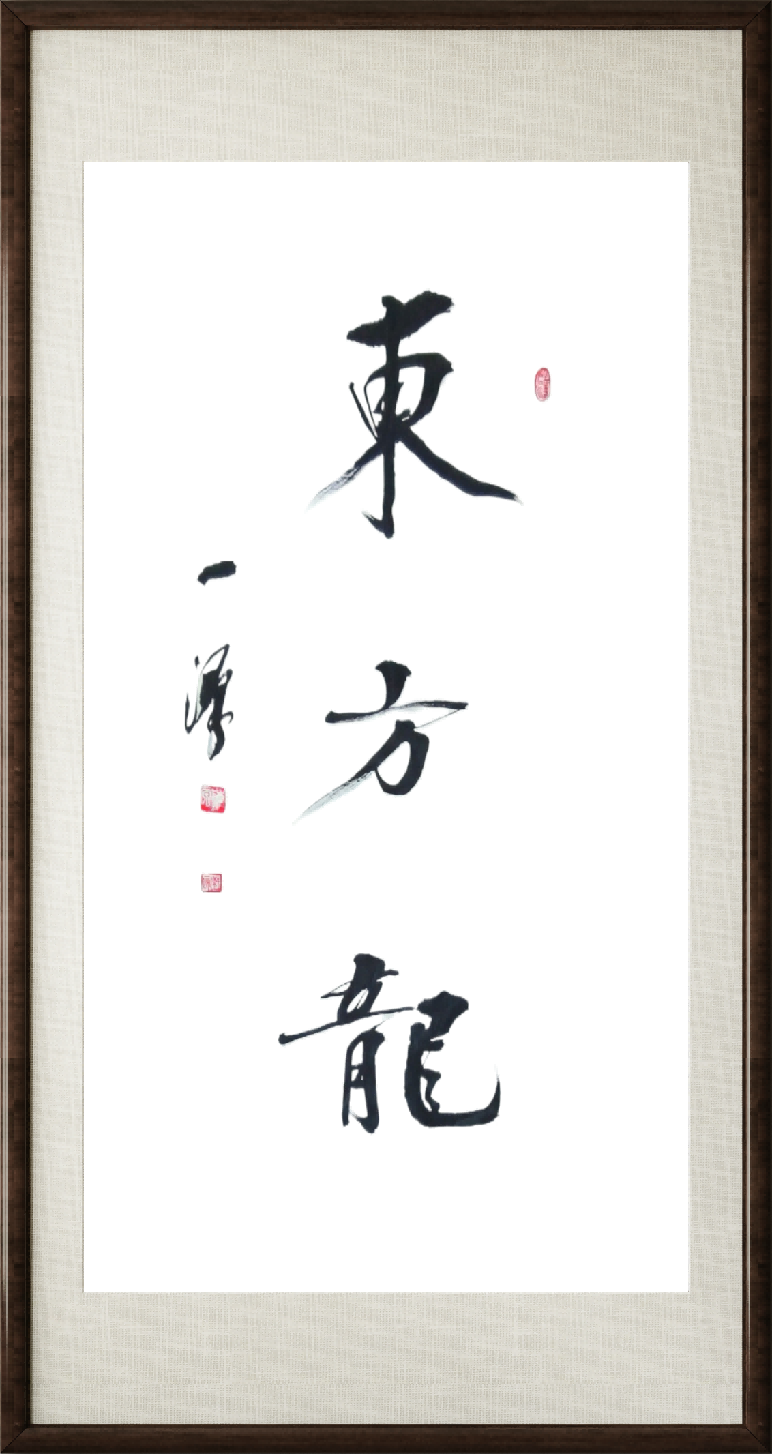 東方龍
一澤